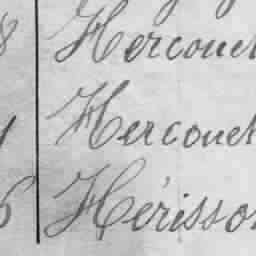 8 Hercouet
Hercouet
6 Hérisson